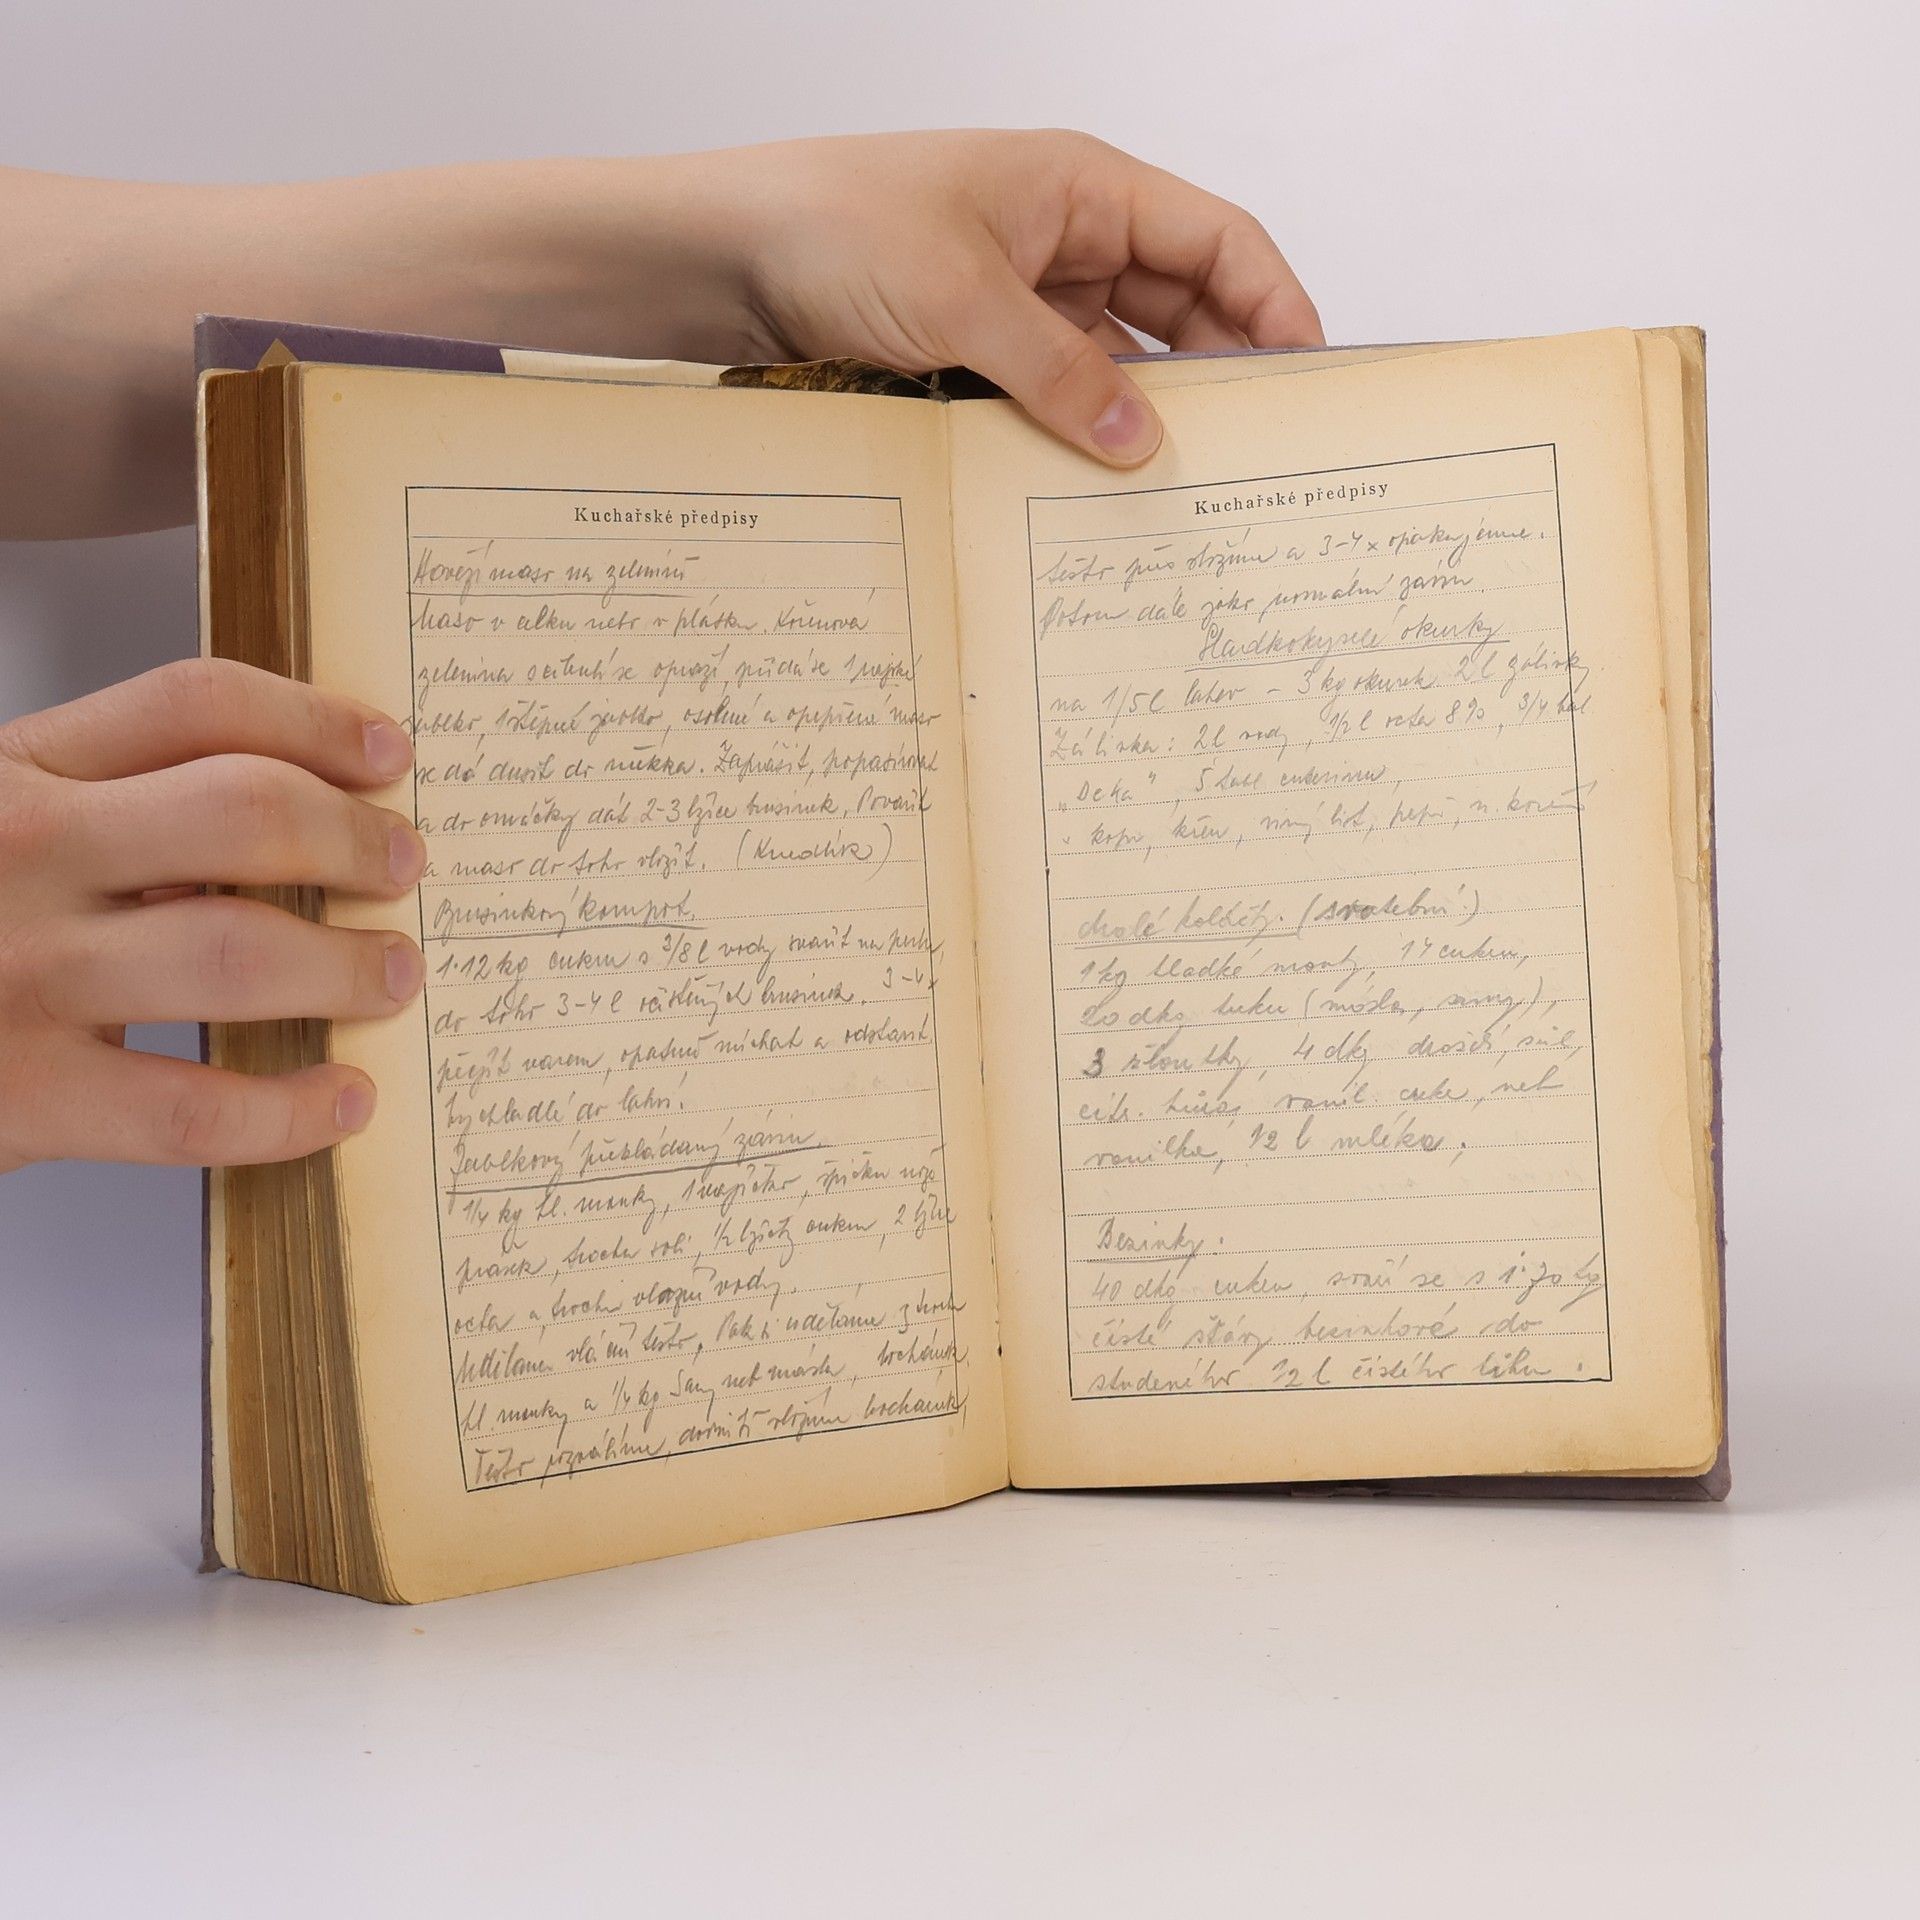 Kuchařské předpisy
Hovězí maso na zelenině
Maso v celku nebo v plátku. Kořenová
zelenina s cibulí se opraží, přidá se 1 rajské
jablko, 1 štěpné jablko, osolené a opepřené maso
se dá dusit do měkka. Zaprášit, propasírovat
a do omáčky dát 2-3 lžíce brusinek. Povařit
a maso do toho vložit. (Knedlík)
Brusinkový kompot.
1·12 kg cukru s 3/8 l vody svařit na perlu,
do toho 3-4 l očištěných brusinek. 3-4x
přejít varem, opatrně míchat a odstavit
vychladlé do lahví.
Jablkový překládaný závin.
1/4 kg hl. mouky, 1 vajíčko, špičku nože
prášek, trochu soli, 1/2 lžičky cukru, 2 lžíce
octa a trochu vlažné vody.
Uděláme vláčné těsto. Pak si uděláme z trochu
hl. mouky a 1/4 kg Sany neb másla, bochánek.
Těsto rozválíme, dovnitř vložíme bochánek,
Kuchařské předpisy
těsto přes složíme a 3-4x opakujeme.
Potom dále jako normální závin.
Sladkokyselé okurky
na 1/5 l lahev - 3 kg okurek 2 l zálivky.
Zálivka: 2 l vody, 1/2 l octa 8%, 3/4 bal
"Deka", 5 tabl cukerinu,
kopr, křen, vinný list, pepř, n. koření
malé koláčky. (svatební)
1 kg hladké mouky, 14 cukru,
20 dkg tuku (másla, sany),
3 žloutky, 4 dkg droždí, sůl,
citr. kůra, vanil. cukr, neb
vanilka, 1/2 l mléka.
Bezinky.
40 dkg cukru, svaří se s 1·70 kg
čisté šťávy bezinkové do
studeného 1/2 l čistého lihu.